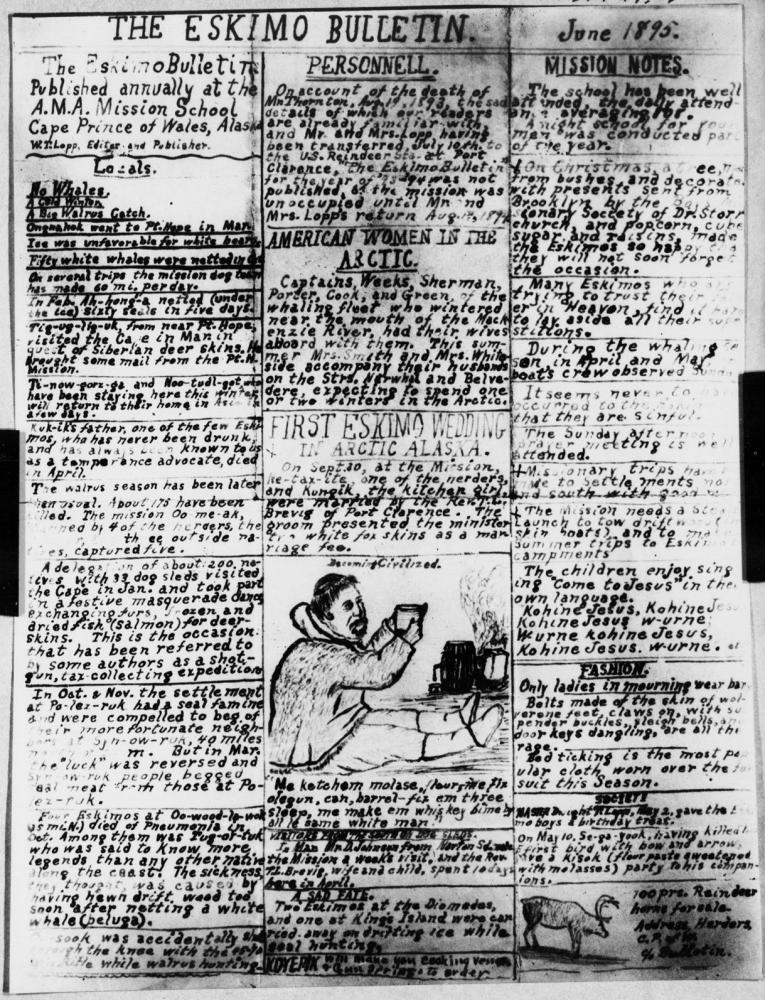 THE ESKIMO BULLETIN.
June 1895.
The Eskimo Bulletin
Published annually at the
A.M.A. Mission School
Cape Prince of Wales, Alaska
W.T. Lopp, Editor and Publisher.
Locals.
No Whales.
A Cold Winter.
A Big Walrus Catch.
Ongnahok went to Pt. Hope in Mar.
Ice was unfavorable for white bears.
Fifty white whales were netted
On several trips the mission dog team
has made 60 mi. per day.
In Feb. Ah-hong-a netted (under
the ice) sixty seals in five days.
Tig-ug-lig-uk, from near Pt. Hope,
visited the Cape in Mar. in
quest of Siberian deer skins. He
brought some mail from the Pt. H.
Mission.
Ti-now-gorz-ga and Noo-tudl-got who
have been staying here this winter
will return to their home in Asia in
a few days.
Kuk-iks father, one of the few Eski-
mos, who has never been drunk,
and has always been known to us
as a temperance advocate, died
in April.
The walrus season has been later
than usual. About 175 have been
killed. The mission Oo me-ak,
manned by 4 of the herders, the
th ee outside na-
tives, captured five.
A delegation of about 200 na-
tives with 33 dog sleds visited
the Cape in Jan. and took part
in a festive masquerade dance
exchanging furs, frozen and
dried fish (Salmon) for deer-
skins. This is the occasion
that has been referred to
by some authors as a shot-
gun, tax-collecting expedition
In Oct. & Nov. the settlement
at Po-lez-ruk had a seal famine
and were compelled to beg of
their more fortunate neigh-
bors at Syn-ow-ruk, 40 miles
m. But in Mar.
the "luck" was reversed and
Syn-ow-ruk people begged
seal meat from those at Po-
lez-ruk.
Four Eskimos at Oo-wood-le-wok
died of Pneumonia in
Oct. Among them was
who was said to know more
legends than any other native
along the coast. The sickness,
they thought, was caused by
having hewn drift wood too
soon after netting a white
whale (beluga).
sook was accidentally shot
through the knee with
rifle while walrus hunting.
PERSONNELL.
On account of the death of
Mr. Thornton, Aug. 19, 1893, the sad
details of which our readers
are already familiar with
and Mr. and Mrs. Lopp having
been transferred, July 10th, to
the U.S. Reindeer Sta. at Port
Clarence, The Eskimo Bulletin
for the year of 1894 was not
published, as the mission was
unoccupied until Mr. and
Mrs. Lopp's return Aug. 1894
AMERICAN WOMEN IN THE
ARCTIC.
Captains, Weeks, Sherman,
Porter, Cook, and Green, of the
whaling fleet who wintered
near the mouth of the Mack
enzie River, had their wives
aboard with them. This sum-
mer Mrs. Smith and Mrs. White
side accompany their husbands
on the Strs. Narwhal and Belve-
dere, expecting to spend one
or two winters in the Arctic.
FIRST ESKIMO WEDDING
IN ARCTIC ALASKA.
On Sept. 30, at the Mission,
Ke-tax-ite, one of the herders,
and Kungik, the kitchen girl,
were married by the Rev. T.L.
Brevig of Port Clarence. The
groom presented the minister
two white fox skins as a mar
riage fee.
Becoming Civilized.
Me ketchem molase, flour, we fix
ologun, can, barrel-fix em three
sleep, me make em whiskey bime by
all le same white man.
VISITORS FROM THE SOUTH BY DOG SLEDS.
In Mar. Mr. D. Johnson from Norton Sd. made
the Mission a week's visit, and the Rev.
T.L. Brevig, wife and child, spent 10 days
here in April.
A SAD FATE.
Two Eskimos at the Diomedes,
and one at King's Island were car
ried away on drifting ice while
seal hunting.
KOYERIK will make you cooking vessels
& Gun springs to order
MISSION NOTES.
The school has been well
attended, the daily attend-
ance averaging 10
A night school for young
men was conducted part
of the year.
On Christmas, a tree, made
from bushes, and decorated
with presents sent from
Brooklyn by the
sionary Society of Dr. Storr
church, and popcorn, cube
sugar, and raisins, made
the Eskimos so happy that
they will not soon forget
the occasion.
Many Eskimos who are
trying to trust their
er in Heaven, find it hard
to lay aside all their super
stitions.
During the whaling sea
son in April and May,
boat's crew observed Sunday.
It seems never to
occurred to the
that they are sinful.
The Sunday afternoon
prayer meeting is well
attended.
Missionary trips have
made to settlements no
and south with good
The Mission needs a Steam
Launch to tow driftwood
(skin boats), and to make
Summer trips to Eskimo
campments
The children enjoy sing
ing "Come to Jesus" in their
own language.
Kohine Jesus, Kohine Jesus
Kohine Jesus w-urne;
W-urne kohine Jesus,
Kohine Jesus. w-urne.
FASHION.
Only ladies in mourning wear
Belts made of the skin of wol-
verene feet, claws on, with sus
pender buckles, sleigh bells, and
door keys dangling, are all the
rage.
Bed ticking is the most pop
ular cloth worn over the fur
suit this Season.
SOCIETY
Lopp, May 2, gave the Eski
mo boys a birthday treat.
On May 10, Se-ga-gook, having killed
first bird with bow and arrow,
gave a Kisok (flour paste sweetened
with molasses) party to his compan-
ions.
100 prs. Reindeer
horns for sale.
Address, Herders,
C.P. of W.
c/o Bulletin.